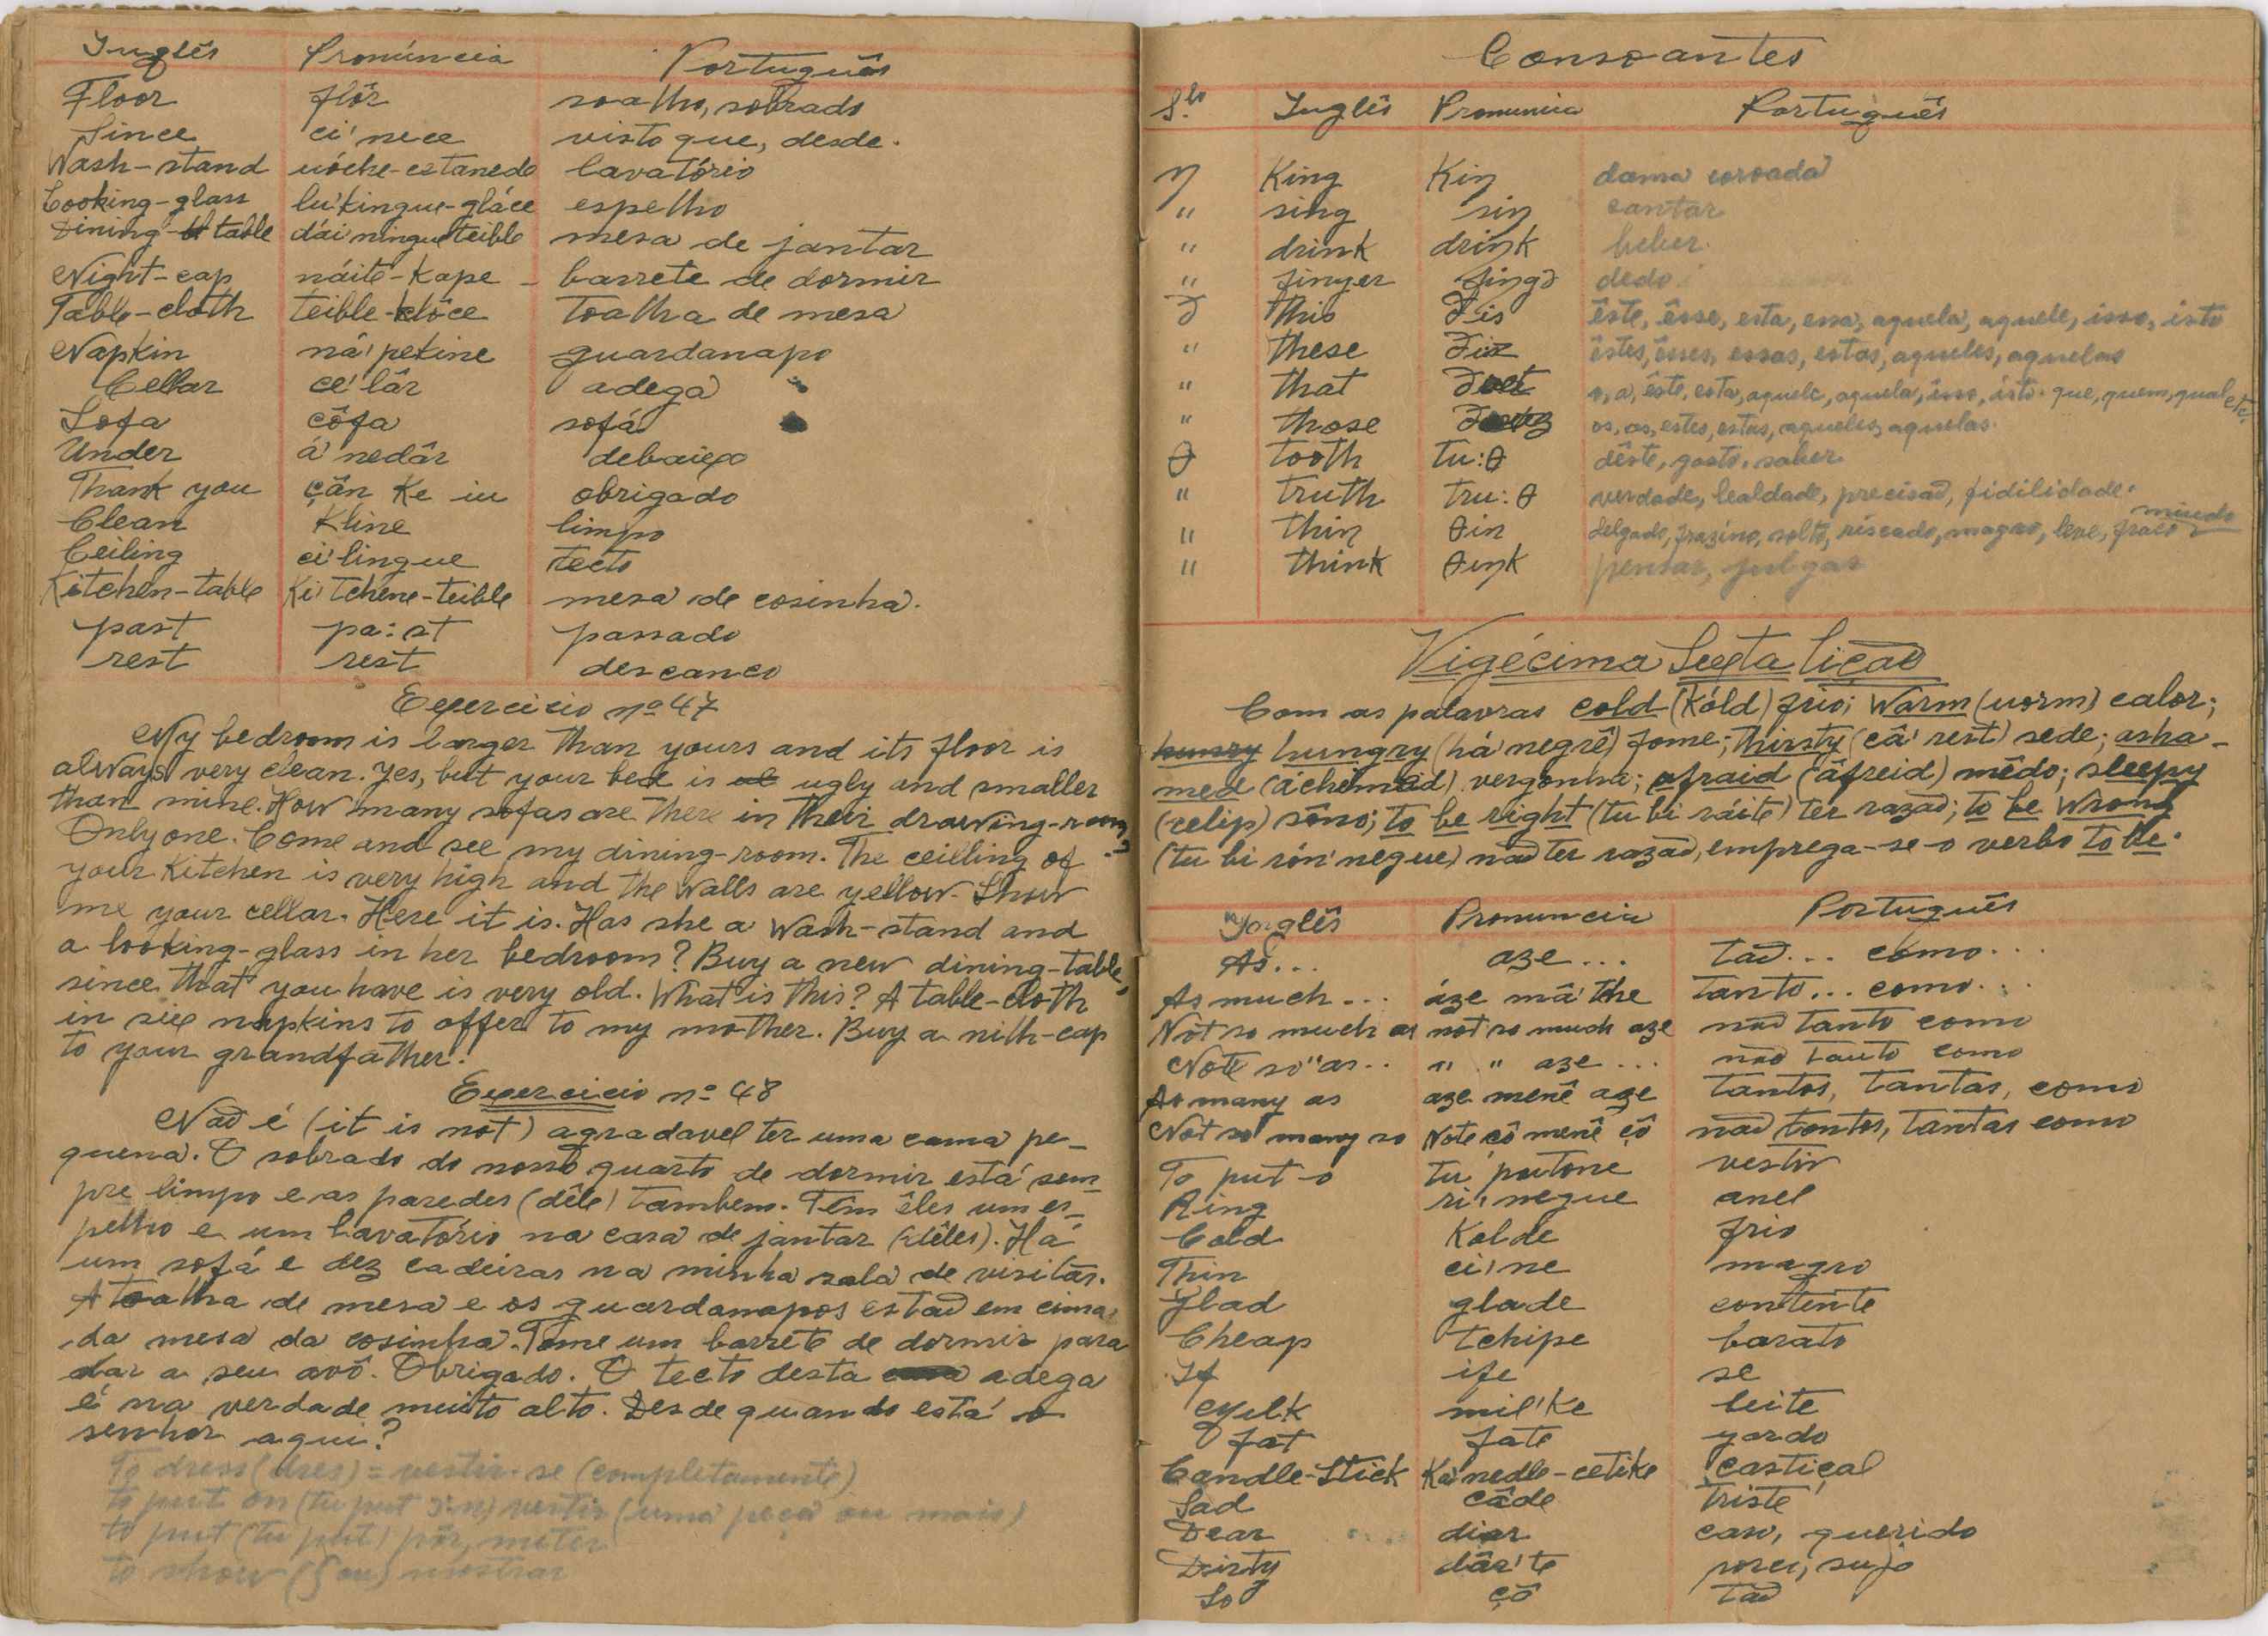 Inglês Pronúncia Português
Floor flôr soalho, sobrado
Since ci'nece visto que, desde.
Wash-stand uóche-estanedo lavatório
Looking-glass lu'kingue-gláce espelho
Dining-table dái'ningue teible mesa de jantar
Night-cap náite-Kape - barrete de dormir
Table-cloth teible-klôce Toalha de mesa
Napkin ná'pekine guardanapo
Cellar cé'lâr adega
Sofa côfa sofá
Under á'nedâr debaixo
Thank you çân Ke iu obrigado
Clean Kline limpo
Ceiling ci'lingue tecto
Kitchen-table Ki'tchene-teible mesa de cosinha.
past pa:st passado
rest rest descanco
Exercicio nº 47
My bedroom is larger than yours and its floor is
always very clean. Yes, but your bed is ugly and smaller
than mine. How many sofas are there in their drawing-room?
Only one. Come and see my dining-room. The ceilling of
your Kitchen is very high and the walls are yellow. Show
me your cellar. Here it is. Has she a wash-stand and
a looking-glass in her bedroom? Buy a new dining-table,
since that you have is very old. What is this? A table-cloth
in six napkins to offer to my mother. Buy a nith-cap
to your grandfather.
Exercicio nº 48
Não é (it is not) agradavel ter uma cama pe-
quena. O sobrado do nosso quarto de dormir está sem-
pre limpo e as paredes (dêle) tambem. Têm êles um es-
pelho e um lavatório na casa de jantar (dêles). Há
um sofá e dez cadeiras na minha sala de visitas.
A toalha de mesa e os guardanapos estão em cima
da mesa da cosinha. Tome um barrete de dormir para
dar a seu avô. Obrigado. O tecto desta adega
é na verdade muito alto. Desde quando está o
senhor aqui?
To dress (dres) = vestir-se (completamente)
to put on (tu put ɔn) vestir (uma peça ou mais)
to put (tu put) pôr, meter
to show (ʃou) mostrar
Consoantes
S.lo Inglês Pronuncia Português
ŋ King Kiŋ dama coroada
" sing siŋ cantar
" drink driŋk beber.
" finger fingə dedo.
ð this ðis êste, êsse, esta, essa, aquela, aquele, isso, isto
" these ðiz êstes, êsses, essas, estas, aqueles, aquelas
" that o, a, êste, esta, aquele, aquela, isso, isto. que, quem, qual etc.
" those os, as, estes, estas, aqueles, aquelas.
θ tooth tu:θ dêste, gosto, saber.
" truth tru:θ verdade, lealdade, precisão, fidilidade.
" thin θin delgado, frazino, solto, riscado, magro, leve, fraco miudo
" think θiŋk pensar, julgar
Vigécima Sexta lição
Com as palavras cold (Kóld) frio; Warm (uorm) calor;
hungry (há'negrê) fome; thirsty (câ'rest) sede; asha-
med (áchemáid) vergonha; afraid (âfreid) mêdo; sleepy
(celip) sôno; to be right (tu bi ráite) ter razão; to be wrong
(tu bi rón'negue) não ter razão, emprega-se o verbo to be.
Inglês Pronuncia Português
As... aze... tão... como...
As much... áze mâ'tche tanto... como...
Not so much as not so much aze não tanto como
Note so "as.. " " aze... não tanto como
As many as aze menê aze tantos, tantas, como
Not so many so Note çô menê çô não tantos, tantas como
To put-o tu putone vestir
Ring ri'negue anel
Cold Kolde frio
Thin ci'ne magro
Glad glade contente
Cheap tchipe barato
If ife se
Milk mil'ke leite
fat fate gordo
Candle-Stick Ká'nedle-cetike castiçal
Sad câde triste
Dear diar caro, querido
Dirty dâr'te porci, sujo
So çô tão